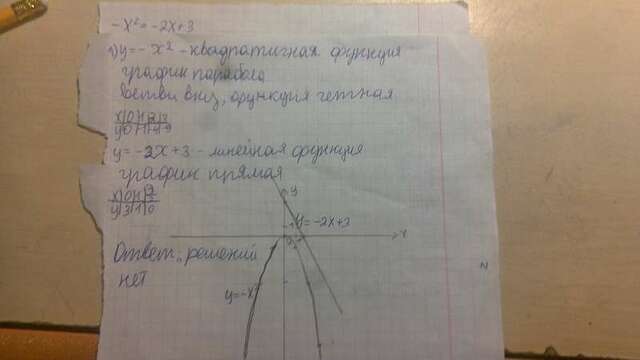 -x² = -2x+3
1) y = -x² - квадратичная функция
график парабола
ветви вниз, функция четная
x|0|1|2|3
y|0|-1|-4|-9
y = -2x+3 - линейная функция
график прямая
x|0|1|
y|3|1|0
y
y = -2x+3
x
Ответ: решений
нет
y = -x²